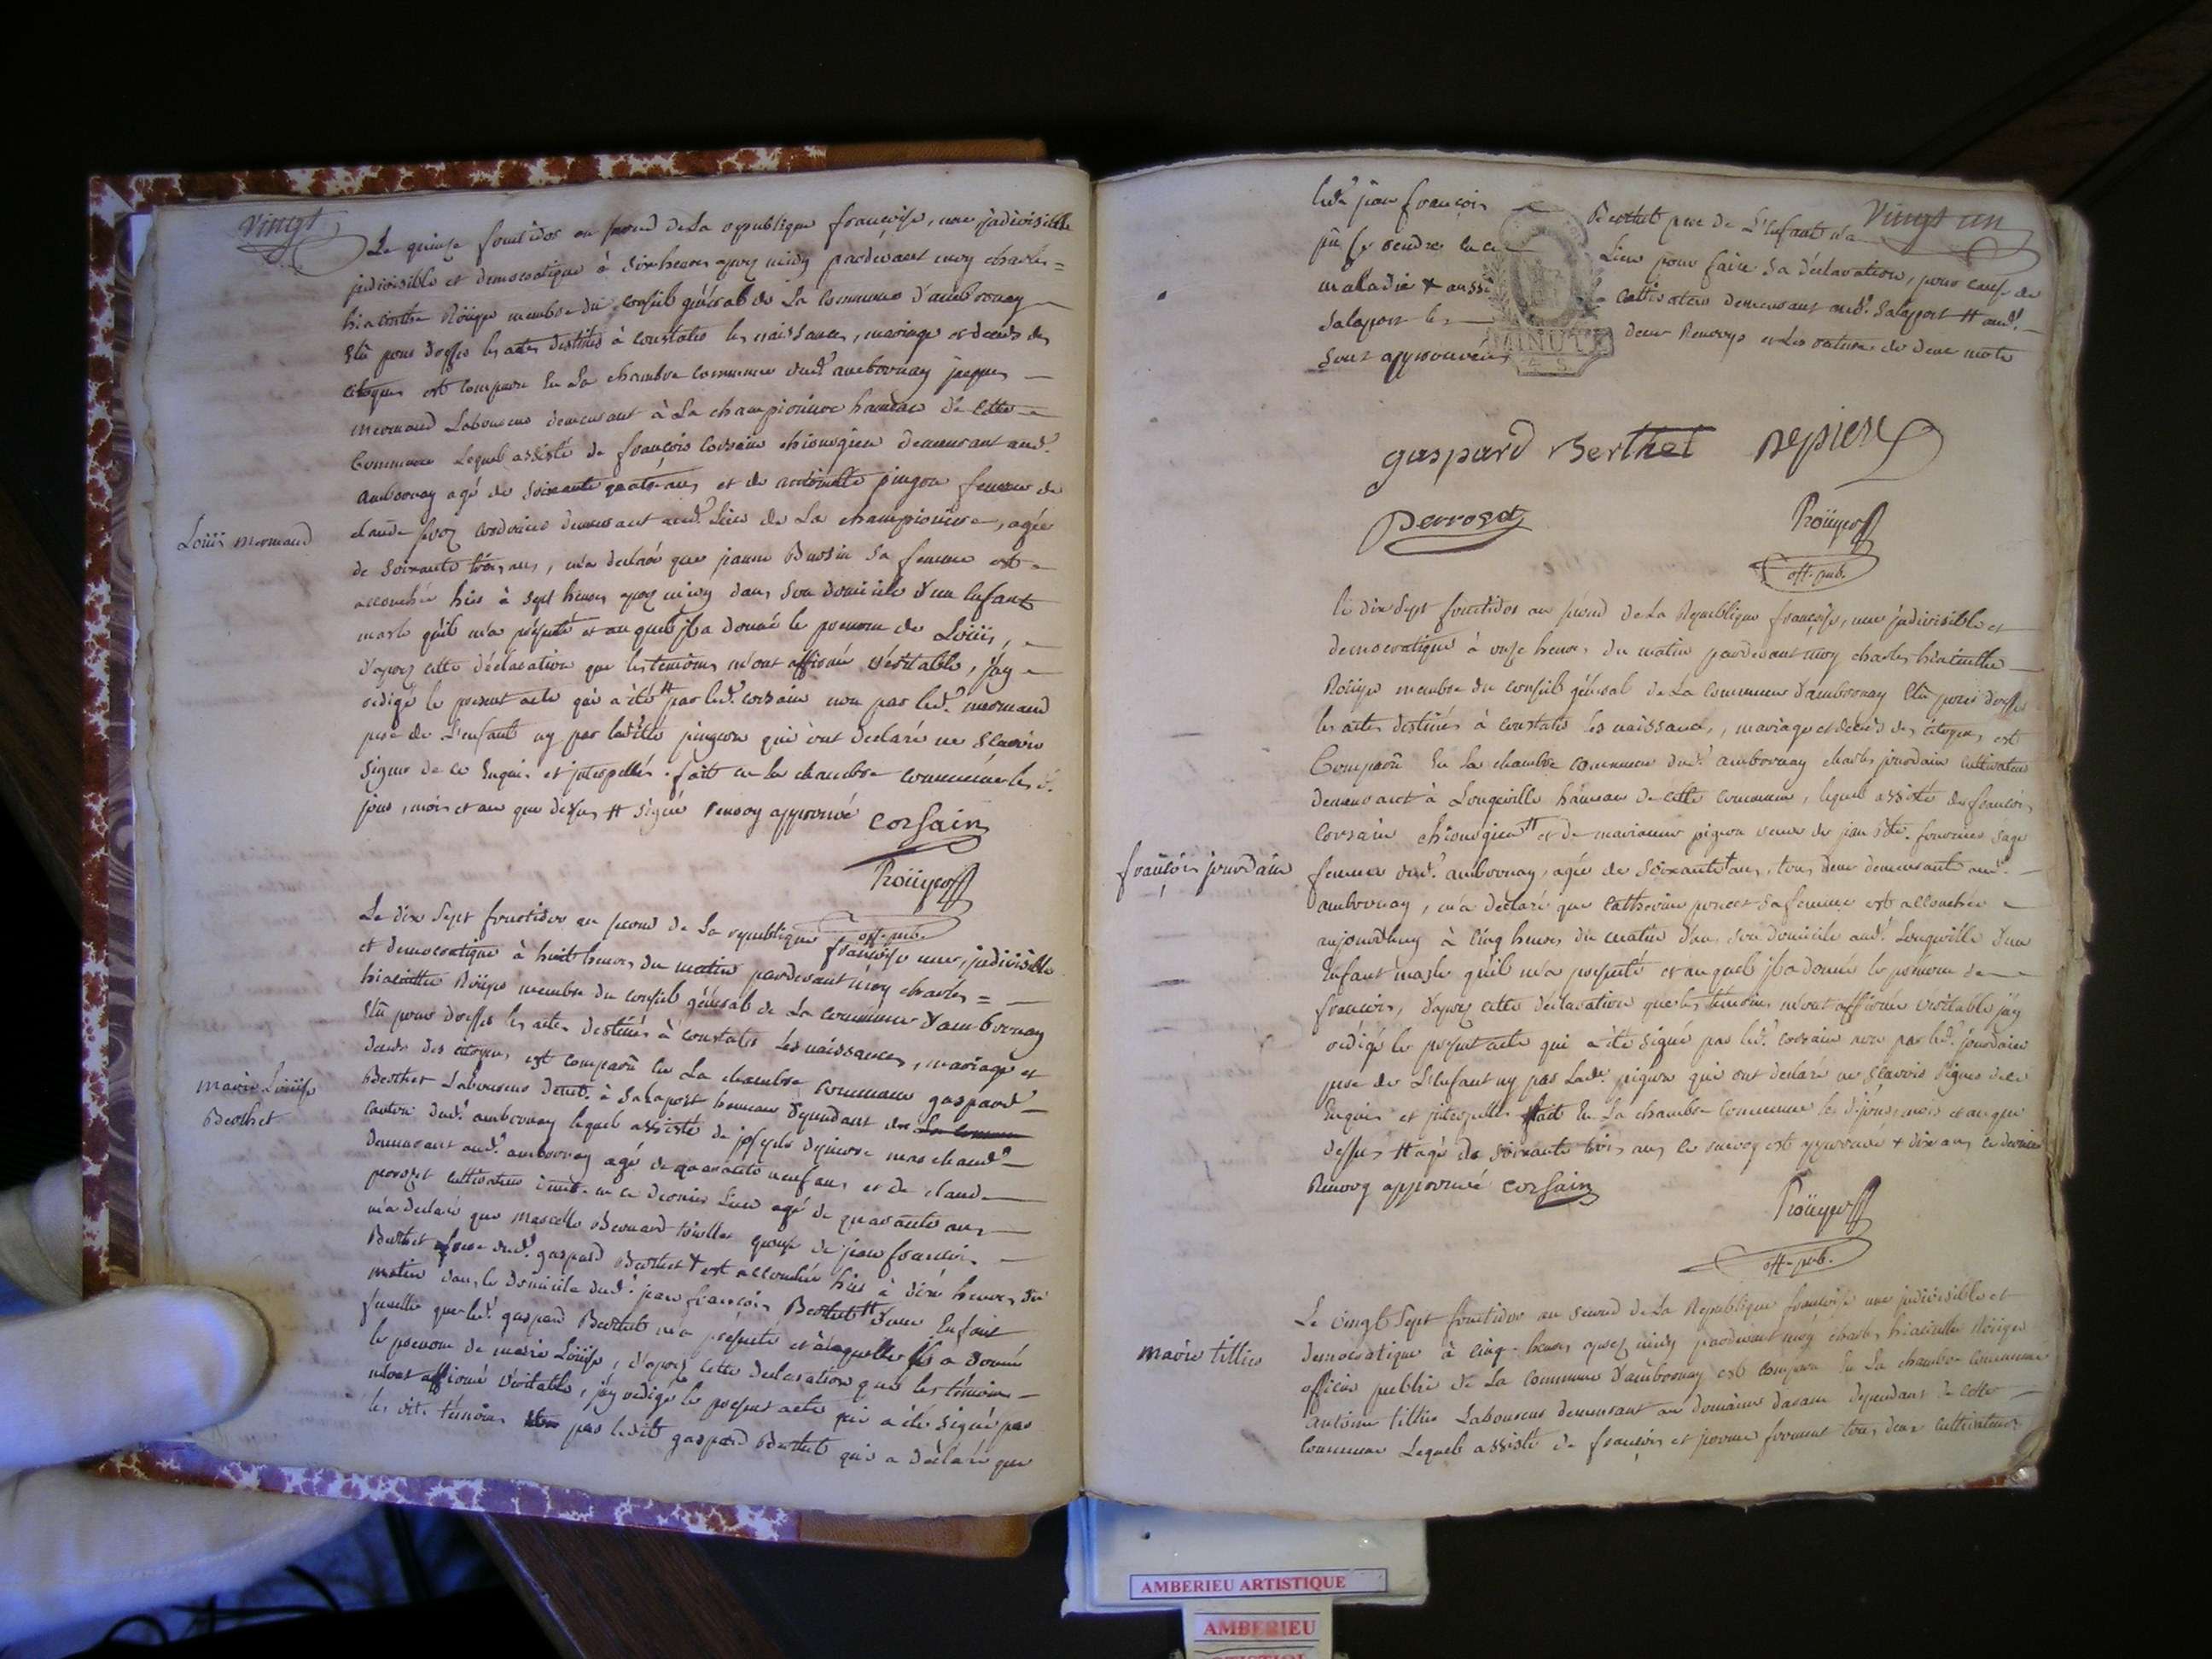 vingt
Le quinze fructidor an second de La republique francoise, une jndivisible
jndivisible et democratique à six heures aprez midy pardevant moy charles =
hiacinthe Roüyer membre du conseil général de La Commune d'ambronay
Elû pour dresser les actes destinés à constater les naissances, mariage et decès des
citoyens est comparu En La chambre commune dud.t ambronay jacques
mermand Laboureur demeurant à La championiere hameau de Cette
Commune Lequel assisté de françois Corsain chirurgien demeurant aud.t
ambronay agé de soixante quatre ans et de pingon femme de
claude cordonier demeurant aud.t Lieu de La championiere, agée
de soixante trois ans, m'a declaré que jeanne Bursin sa femme est
Loüis mermand
accouchée hier à sept heures aprez midy dans son domicile d'un Enfant
masle qu'il m'a présenté et auquel jl a donné le prenom de Loüis,
d'aprez cette déclaration que les temoins m'ont affirmé véritable, j'ay
redigé le present acte qui a été # par led.t corsain non par led.t mermand
pere de L'enfant ny par ladite pingon qui ont declaré ne sçavoir
signer de ce Enquis et jnterpellés. fait en la chambre commune les d.
jour, mois et an que dessus # signé renvoy approuvé corsain
Roüyer
off. pub.
Le dix sept fructidor an second de La republique francoise une, jndivisible
et democratique à huit heures du matin pardevant moy charles =
hiacinthe Roüyer membre du conseil général de La commune d'ambronay
Elû pour dresser les actes destinés à constater les naissances, mariage et
decès des citoyens est comparû En La chambre commune gaspard
marie Loüise
Berthet
Berthet Laboureur demt. à Salaport hameau dependant de La commune
canton dud.t ambronay lequel assisté de joseph depierre marchand
demeurant aud.t ambronay agé de quarante neuf ans et de claude
perrozet cultivateur demt. en ce dernier Lieu agé de quarante ans
m'a declaré que Marcelle Bernard épouse de jean françois
Berthet frere dud.t gaspard Berthet + est accouchée hier à dix heures du
matin dans le Domicile dud.t jean françois Berthet # d'une Enfant
femelle que led.t gaspard Berthet m'a presenté et a laquelle jl a donné
le prenom de marie Loüise, d'aprez cette declaration que les témoins
m'ont affirmé véritable, j'ay redigé le present acte qui a été signé par
les dits témoins par ledit gaspard Berthet qui a déclaré que
vingt un
led.t jean françois Berthet pere de L'Enfant n'a
pû se rendre en ce Lieu pour faire sa déclaration, pour cause de
maladie + aussi cultivateur demeurant aud.t Salaport # aud.t
Salaport les deux Renvoys et les ratures de deux mots
sont approuvées
MINUTE
gaspard Berthet depierre
Perrozet
Roüyer
off. pub.
le dix sept fructidor an second de La Republique françoise, une jndivisible et
democratique à onze heures du matin pardevant moy charles hiacinthe
Roüyer membre du conseil général de La Commune d'ambronay Elû pour dresser
les actes destinés à constater les naissances, mariage et décès des citoyens est
Comparû En La chambre commune dud.t ambronay charles jourdain cultivateur
demeurant à Longeville hameau de cette commune, lequel assisté de francois
corsain chirurgien # et de marianne pigeon veuve de jean Bte. fournier sage
françois jourdain
femme dud.t ambronay, agée de soixante + ans, tous deux demeurants aud.t
ambronay, m'a declaré que Catherine poncet sa femme est accouchée
aujourdhuy à cinq heures du matin dans son domicile aud.t Longeville d'un
Enfant masle qu'il m'a presenté et auquel jl a donné le prenom de
francois, d'aprez cette declaration que les témoins m'ont affirmé véritable j'ay
rédigé le present acte qui a été signé par led.t corsain non par led.t jourdain
pere de L'Enfant ny par Lad.e pigeon qui ont declaré ne sçavoir signer de ce
Enquis et jnterpellés fait En La chambre Commune les d. jour, mois et an que
dessus # agé de soixante trois ans ce renvoy est approuvé + dix ans ce dernier
Renvoy approuvé corsain
Roüyer
off. pub.
Le vingt sept fructidor an second de La Republique francoise une jndivisible et
marie tillier
democratique à cinq heures aprez midy pardevant moy charles hiacinthe Roüyer
officier public de La commune d'ambronay est comparu En La chambre commune
antoine tillier Laboureur demeurant au domaine dependant de cette
commune Lequel assisté de françois et froment tous deux cultivateurs
AMBERIEU ARTISTIQUE
AMBERIEU